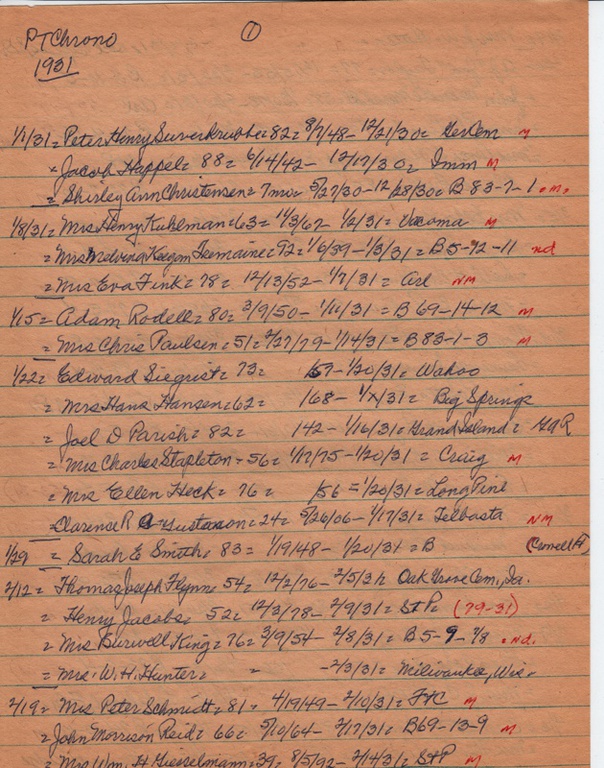 PT Chrono ①
1931
1/1/31 = Peter Henry Suverkrubbe = 82 = 8/7/48 - 12/21/30 = GerCem M
× Jacob Happel = 88 = 6/14/42 - 12/17/30 = Imm M
= Shirley Ann Christensen = 7mo = 5/27/30 - 12/28/30 = B 83-7-1 . m.
1/8/31 = Mrs Henry Kuhlman = 63 = 11/3/67 - 1/2/31 = Vacoma M
= Mrs Melvina Keegan Tremaine = 92 = 1/6/39 - 1/3/31 = B 5-72-11 nd
= Mrs Eva Fink = 78 = 12/13/52 - 1/7/31 = Arl NM
1/15 = Adam Rodell = 80 = 3/9/50 - 1/11/31 = B 69-14-12 M
= Mrs Chris Paulsen = 51 = 2/27/79 - 1/14/31 = B 83-1-3 M
1/22 = Edward Siegrist = 73 = /57 - 1/20/31 = Wahoo
= Mrs Hans Hansen = 62 = /68 - 1/x/31 = Big Springs
= Joel D Parish = 82 = /42 - 1/16/31 = Grand Island = GAR
= Mrs Charles Stapleton = 56 = 1/17/75 - 1/20/31 = Craig M
= Mrs Ellen Heck = 76 = /56 = 1/20/31 = Long Pine
= Clarence R Gustason = 24 = 5/26/06 - 1/17/31 = Telbasta NM
1/29 = Sarah E Smith = 83 = 1/19/48 - 1/20/31 = B (Cowell H)
2/12 = Thomas Joseph Flynn = 54 = 12/2/76 - 2/5/31 = Oak Grove Cem, Ia.
= Henry Jacobs = 52 = 12/3/78 - 2/9/31 = St P = (79-31)
= Mrs Burwell King = 76 = 3/9/54 - 2/8/31 = B 5-9-7/8 = Nd.
= Mrs. W. H. Hunter = = - 2/3/31 = Milwaukee, Wis.
2/19 = Mrs Peter Schmidt = 81 = 4/19/49 - 2/10/31 = FtC M
= John Morrison Reid = 66 = 5/10/64 - 2/17/31 = B 69-13-9 M
= Mrs Wm. H Gieselmann = 39 = 8/5/92 - 2/14/31 = St P M